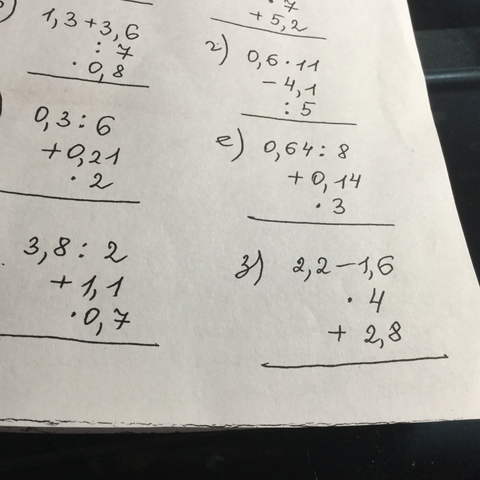 1,3+3,6
: 7
· 0,8
0,3 : 6
+0,21
· 2
3,8 : 2
+1,1
·0,7
· 7
+5,2
г) 0,6·11
-4,1
: 5
е) 0,64 : 8
+0,14
· 3
з) 2,2-1,6
· 4
+ 2,8